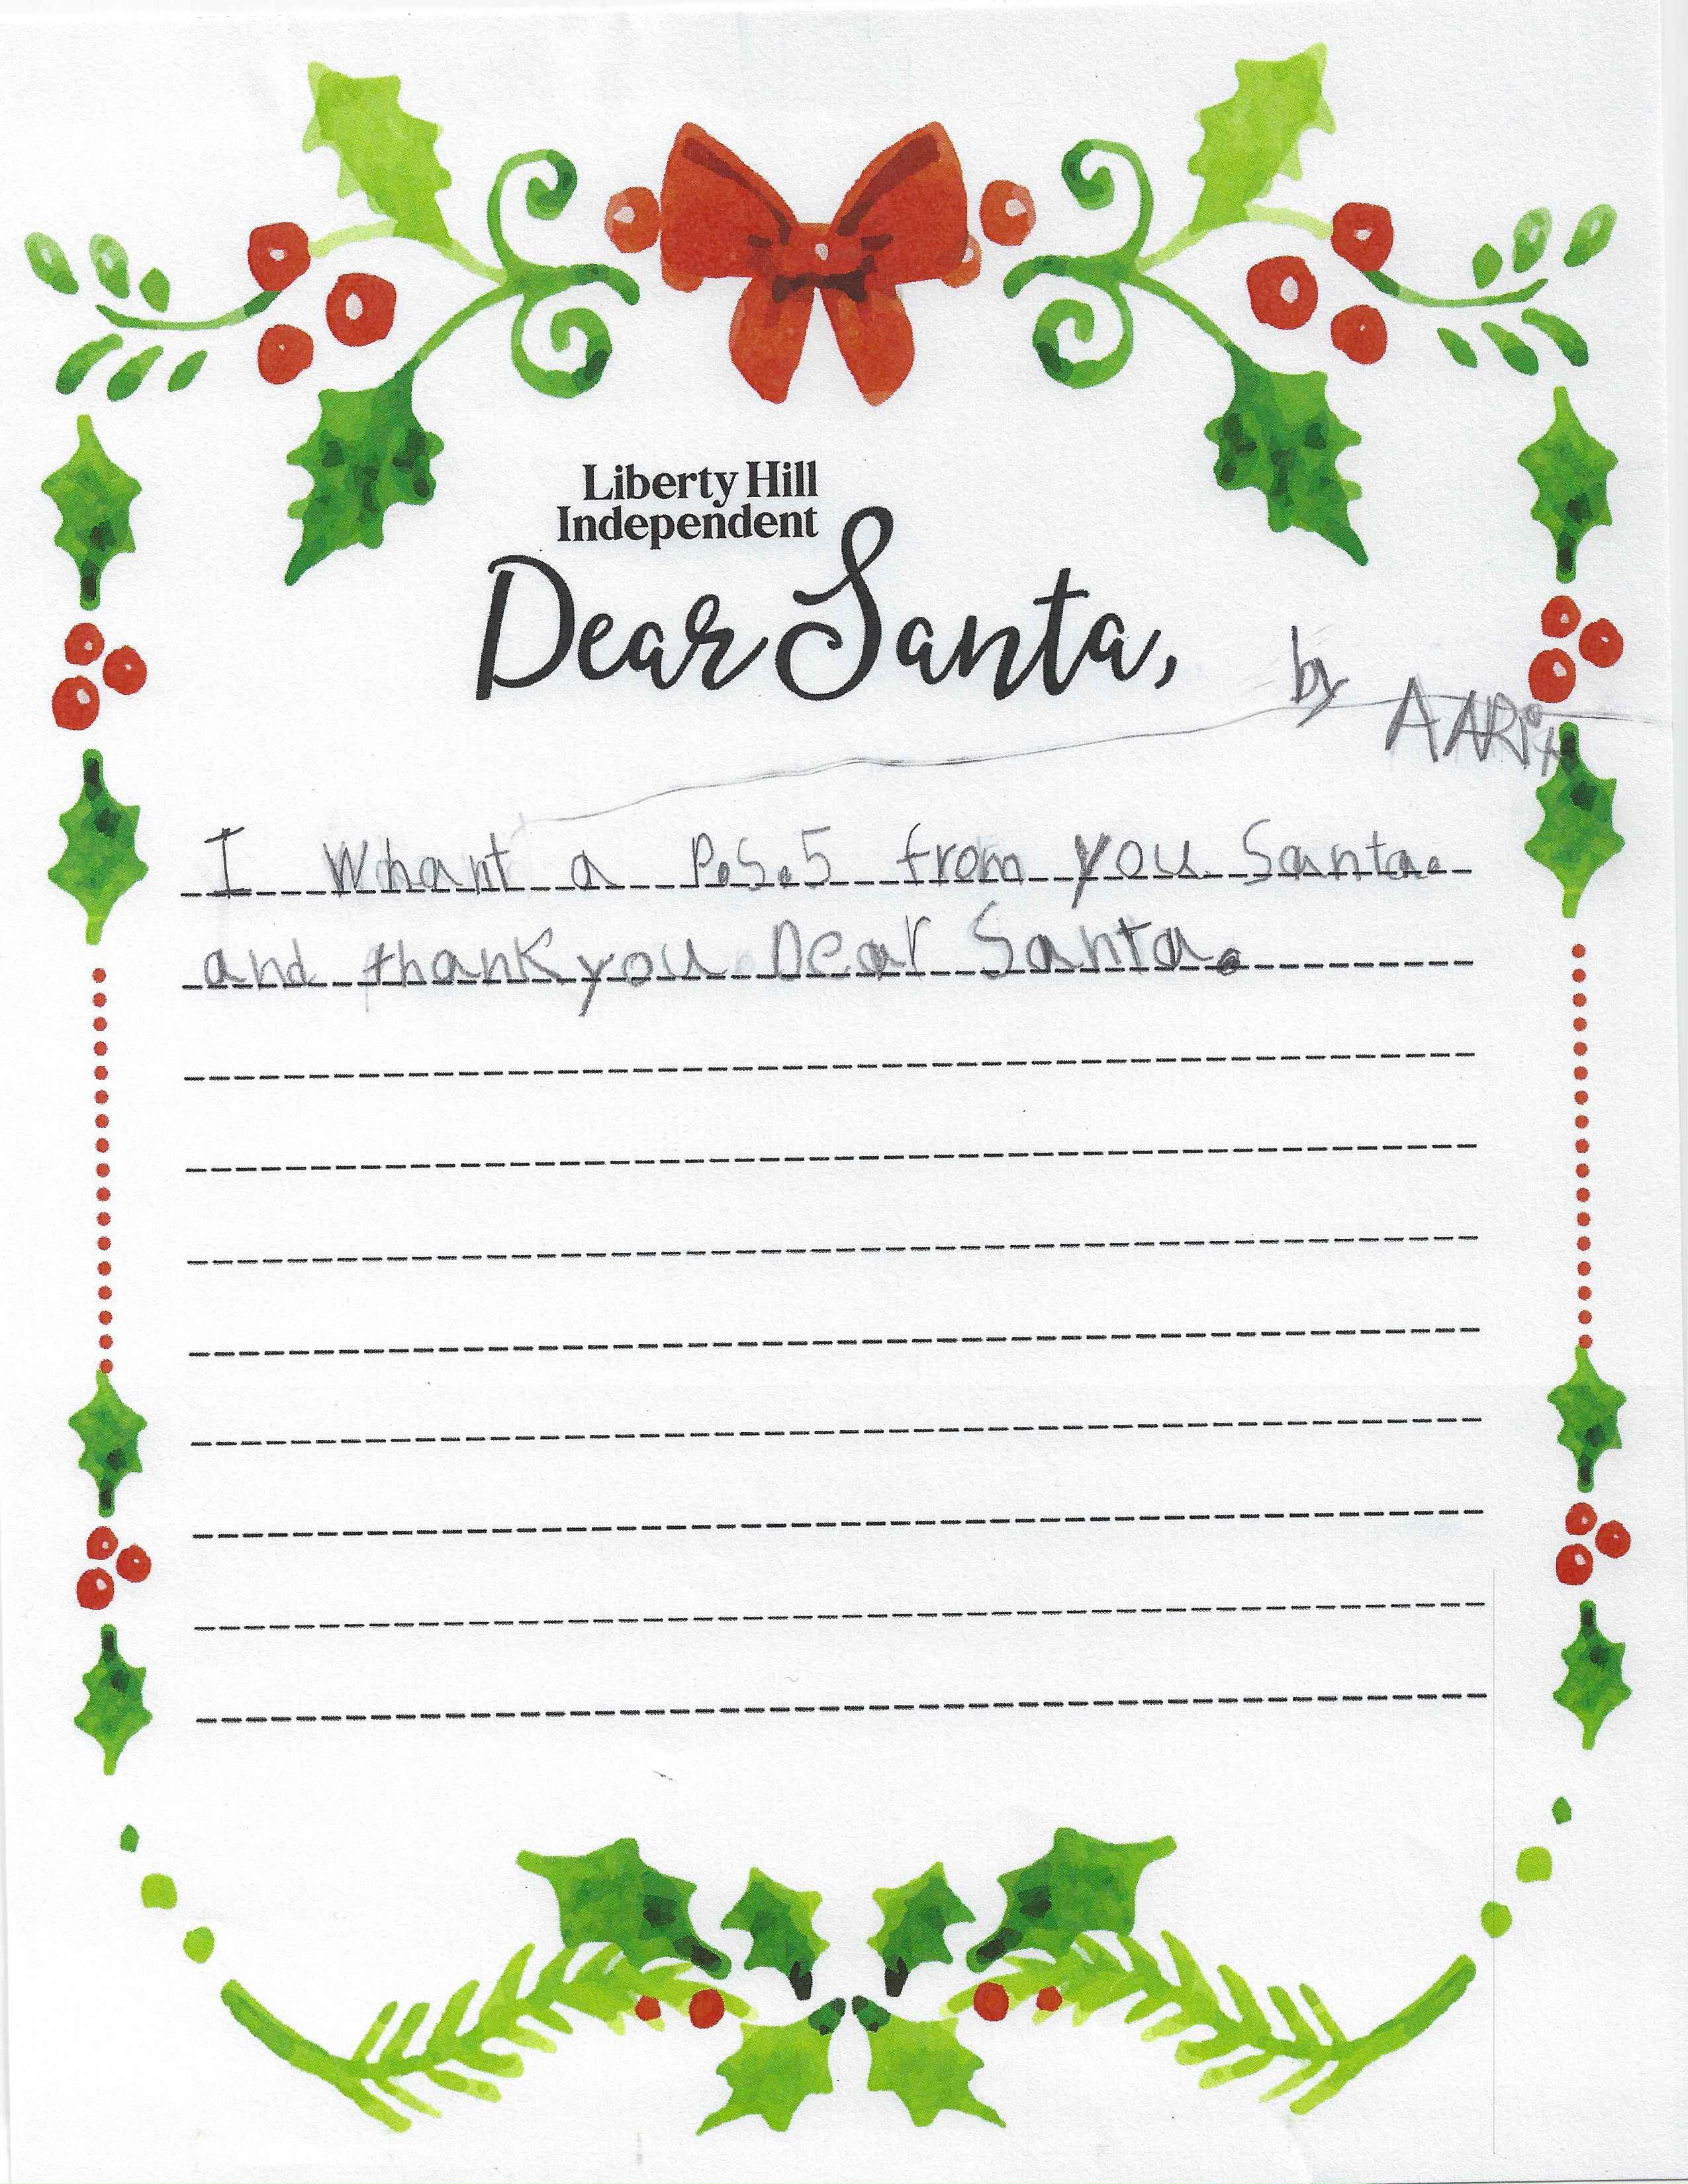 Liberty Hill
Independent
Dear Santa,
by AARit
I Whant a P.S.5 from you Santa.
and thank you Dear Santa.